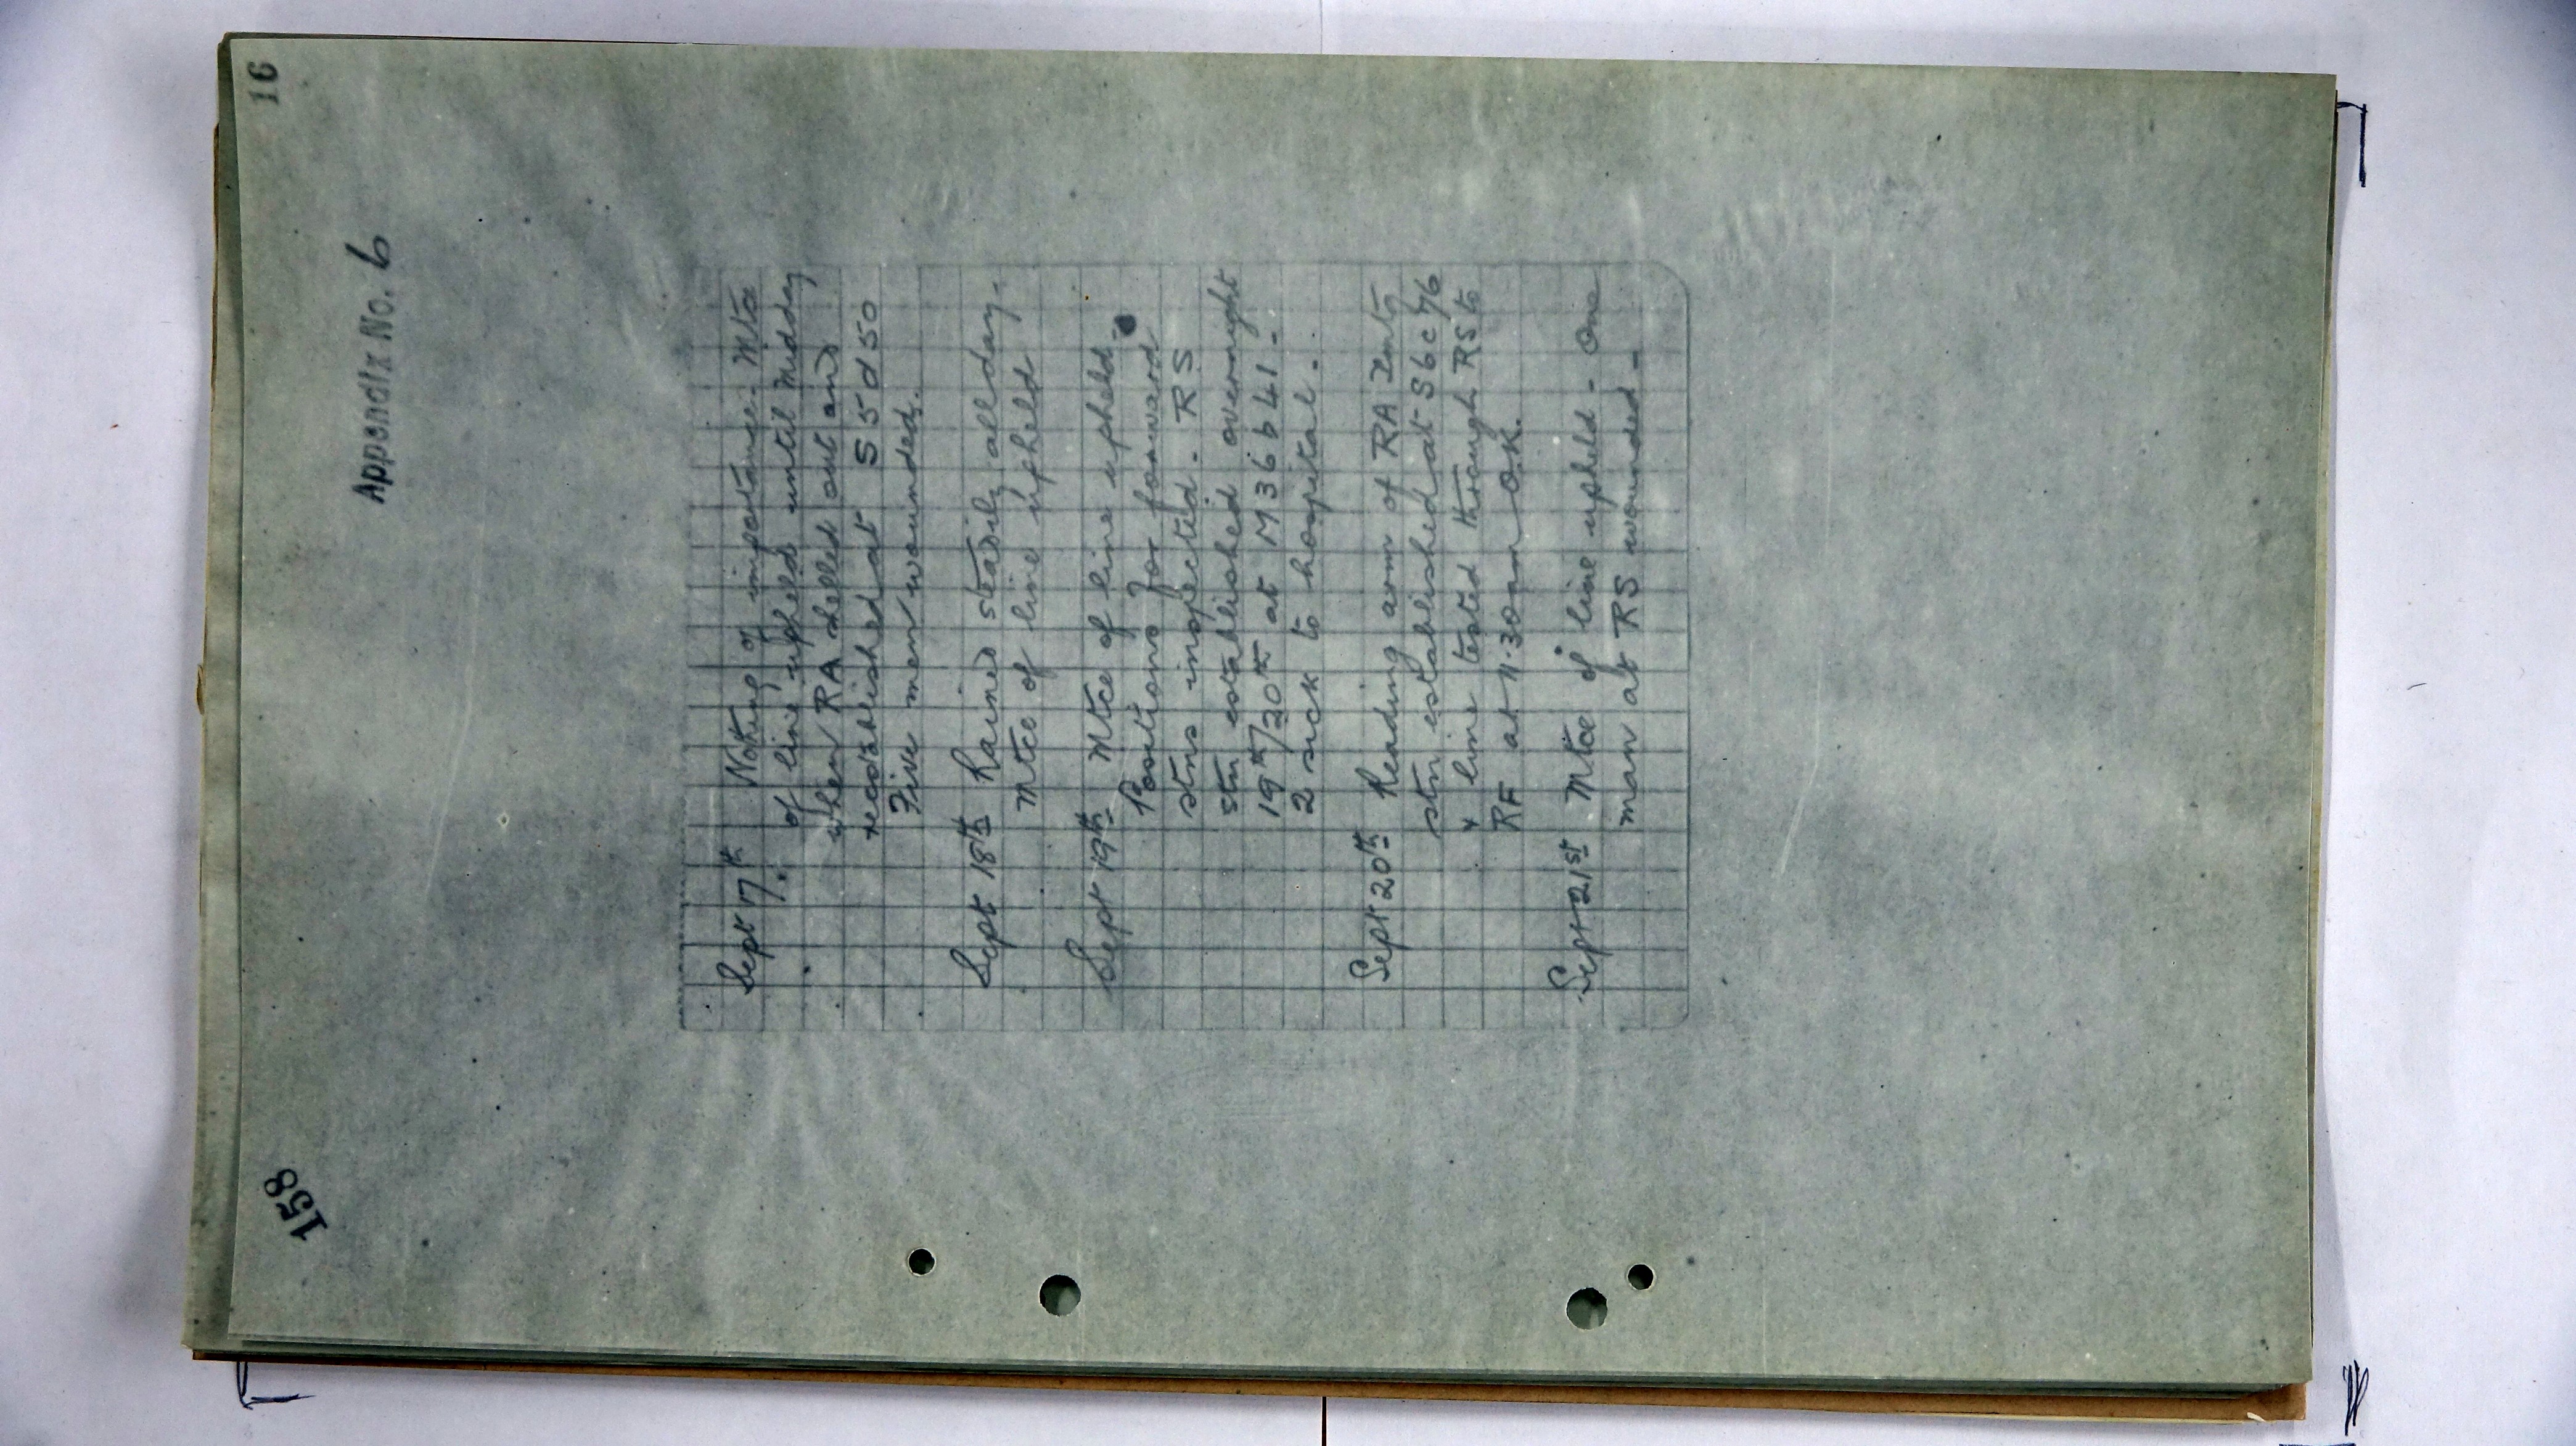 158
16
Appendix No. 6
Sept 17th Nothing of importance. Mtce
of line upheld until midday
when RA shelled out and
reestablished at S5d50
Five men wounded.
Sept 18th Rained steadily all day -
Mtce of line upheld
Sept 19th Mtce of line upheld -
Positions for forward
stns inspected. RS
stn established overnight
19th/20th at M36b41 -
2 sick to hospital -
Sept 20th Reading arm of RA
stn established at S6c76
& line tested through RS to
RF at 11.30am O.K.
Sept 21st Mtce of line upheld - One
man at RS wounded -